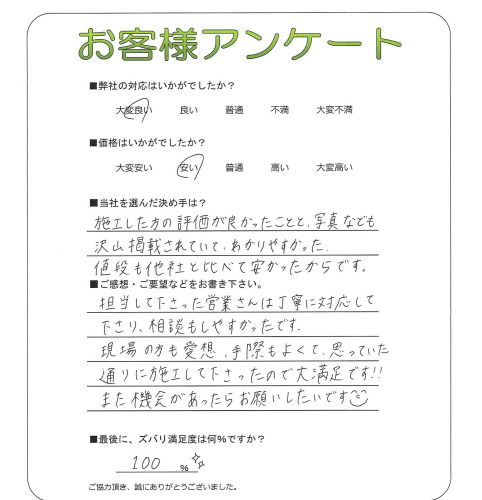 お客様アンケート
■弊社の対応はいかがでしたか？
大変良い 良い 普通 不満 大変不満
■価格はいかがでしたか？
大変安い 安い 普通 高い 大変高い
■当社を選んだ決め手は？
施工した方の評価が良かったことと、写真なども
沢山掲載されていて、わかりやすかった。
値段も他社と比べて安かったからです。
■ご感想・ご要望などをお書き下さい。
担当して下さった営業さんは丁寧に対応して
下さり、相談もしやすかったです。
現場の方も愛想、手際もよくて、思っていた
通りに施工して下さったので大満足です!!
また機会があったらお願いしたいです
■最後に、ズバリ満足度は何％ですか？
100 %
ご協力頂き、誠にありがとうございました。